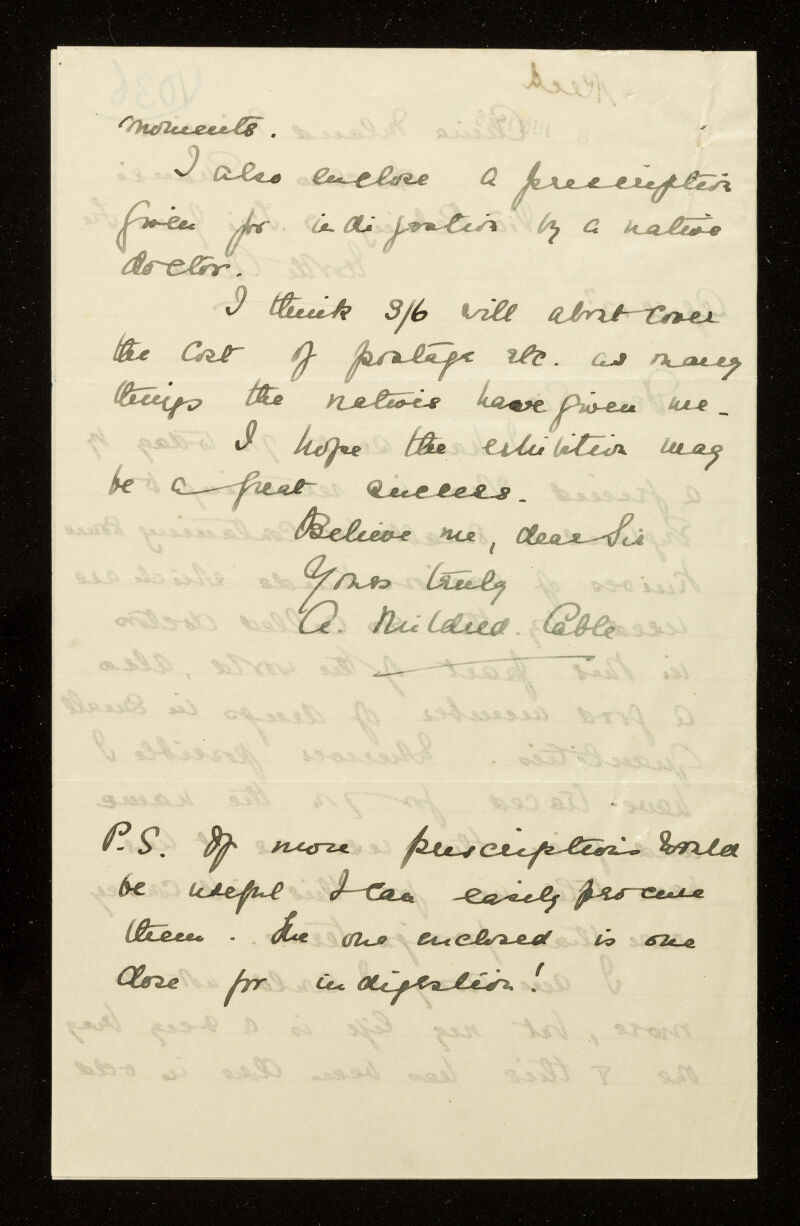 moments.
I also enclose a prescription
given for indigestion by a native
doctor.
I think 3/6 will about cover
the cost of postage etc. as many
things the natives have given me.
I hope the exhibition may
be a great success.
Believe me, dear Sir
Yours truly
A. Mildred. Cable
P.S. If more prescriptions would
be useful I can easily procure
them. The one enclosed is one
dose for indigestion!